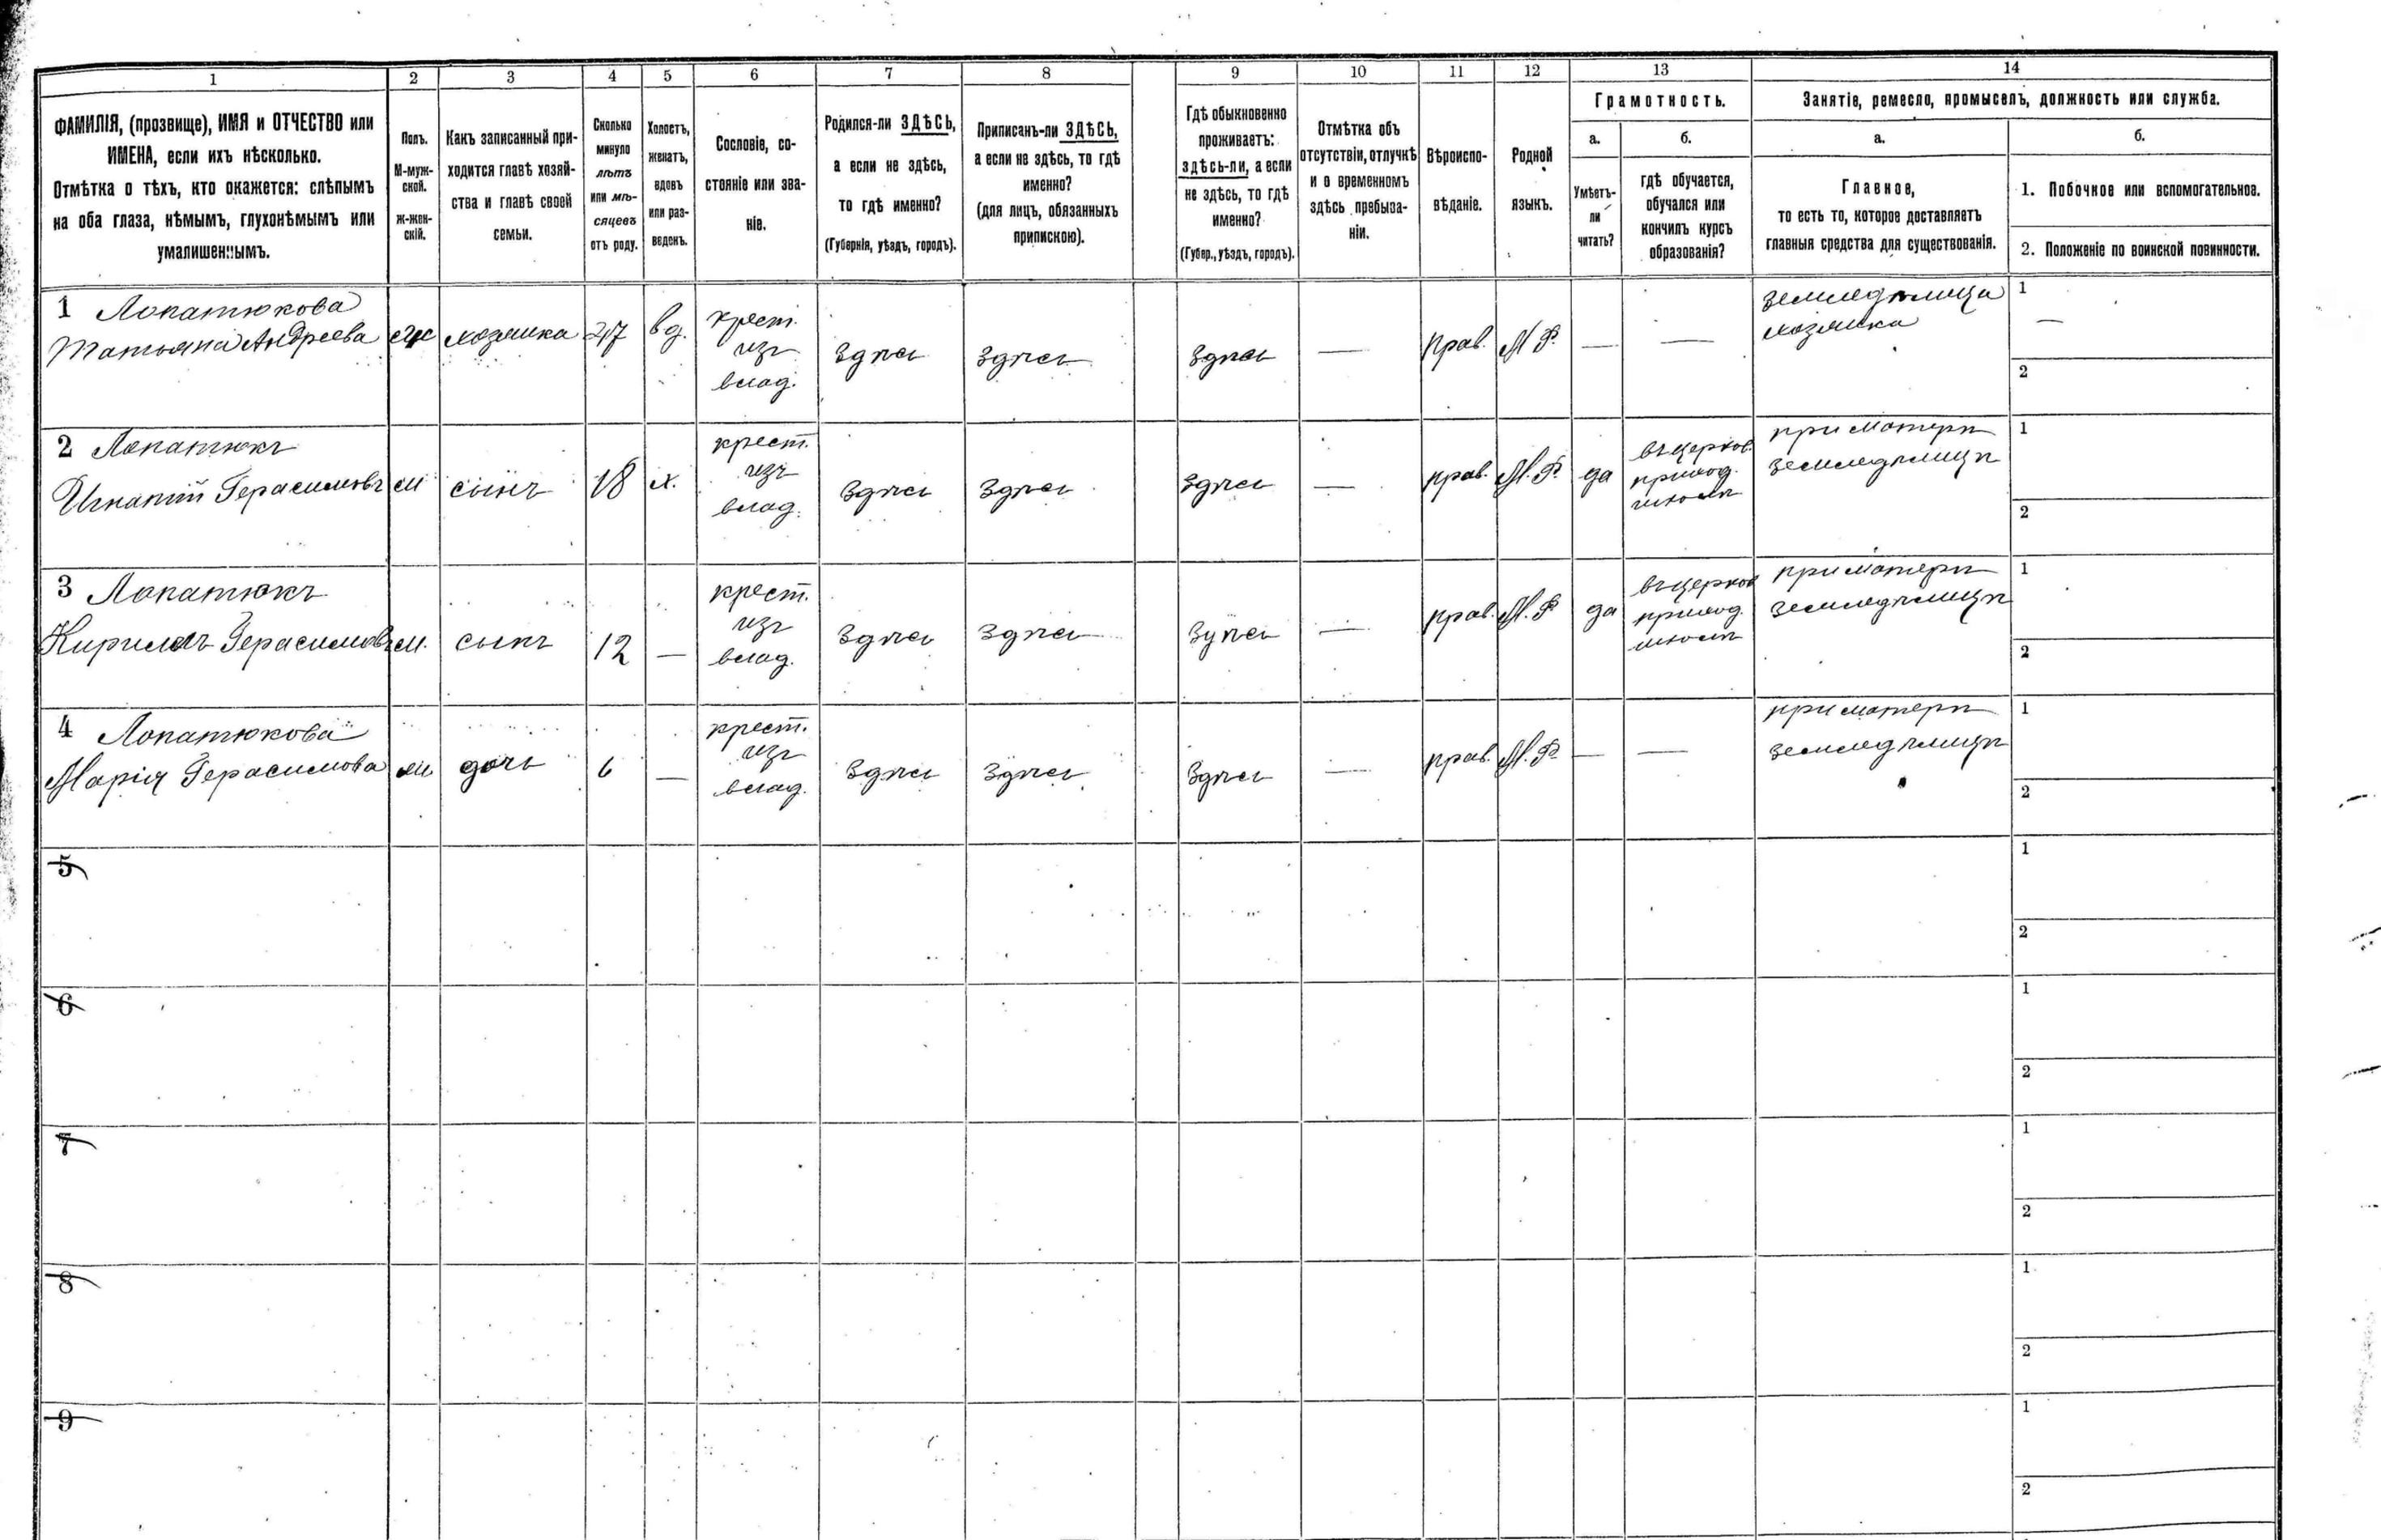 1 2 3 4 5 6 7 8 9 10 11 12 13 14
ФАМИЛІЯ, (прозвище), ИМЯ и ОТЧЕСТВО или
ИМЕНА, если ихъ нѣсколько.
Отмѣтка о тѣхъ, кто окажется: слѣпымъ
на оба глаза, нѣмымъ, глухонѣмымъ или
умалишеннымъ.
Полъ.
М-муж-
ской.
ж-жен-
скій.
Какъ записанный при-
ходится главѣ хозяй-
ства и главѣ своей
семьи.
Сколько
минуло
лѣтъ
или мѣ-
сяцевъ
отъ роду.
Холостъ,
женатъ,
вдовъ
или раз-
веденъ.
Сословіе, со-
стояніе или зва-
ніе.
Родился-ли ЗДѢСЬ,
а если не здѣсь,
то гдѣ именно?
(Губернія, уѣздъ, городъ).
Приписанъ-ли ЗДѢСЬ,
а если не здѣсь, то гдѣ
именно?
(для лицъ, обязанныхъ
припискою).
Гдѣ обыкновенно
проживаетъ:
здѣсь-ли, а если
не здѣсь, то гдѣ
именно?
(Губер., уѣздъ, городъ).
Отмѣтка объ
отсутствіи, отлучкѣ
и о временномъ
здѣсь пребыва-
ніи.
Вѣроиспо-
вѣданіе.
Родной
языкъ.
Грамотность.
а.
Умѣетъ-
ли
читать?
б.
гдѣ обучается,
обучался или
кончилъ курсъ
образованія?
Занятіе, ремесло, промыселъ, должность или служба.
а.
Главное,
то есть то, которое доставляетъ
главныя средства для существованія.
б.
1. Побочное или вспомогательное.
2. Положеніе по воинской повинности.
1 Лопатюкова
Татьяна Андреева
ж
хозяйка
47
вд.
крест.
изъ
влад.
Здѣсь
Здѣсь
Здѣсь
—
Прав.
М. Р.
—
—
земледѣлица
хозяйка
1
—
2
2 Лопатюкъ
Игнатій Герасимовъ
м
сынъ
18
х.
крест.
изъ
влад.
Здѣсь
Здѣсь
Здѣсь
—
прав.
М. Р.
да
въ церков.
приход.
школѣ
при матери
земледѣлицѣ
1
2
3 Лопатюкъ
Кириллъ Герасимовъ
м.
сынъ
12
—
крест.
изъ
влад.
Здѣсь
Здѣсь
Здѣсь
—
прав.
М. Р.
да
въ церков
приход.
школѣ
при матери
земледѣлицѣ
1
2
4 Лопатюкова
Марія Герасимова
ж
дочь
6
—
крест.
изъ
влад.
Здѣсь
Здѣсь
Здѣсь
—
прав.
М. Р.
—
—
при матери
земледѣлицѣ
1
2
5
1
2
6
1
2
7
1
2
8
1
2
9
1
2